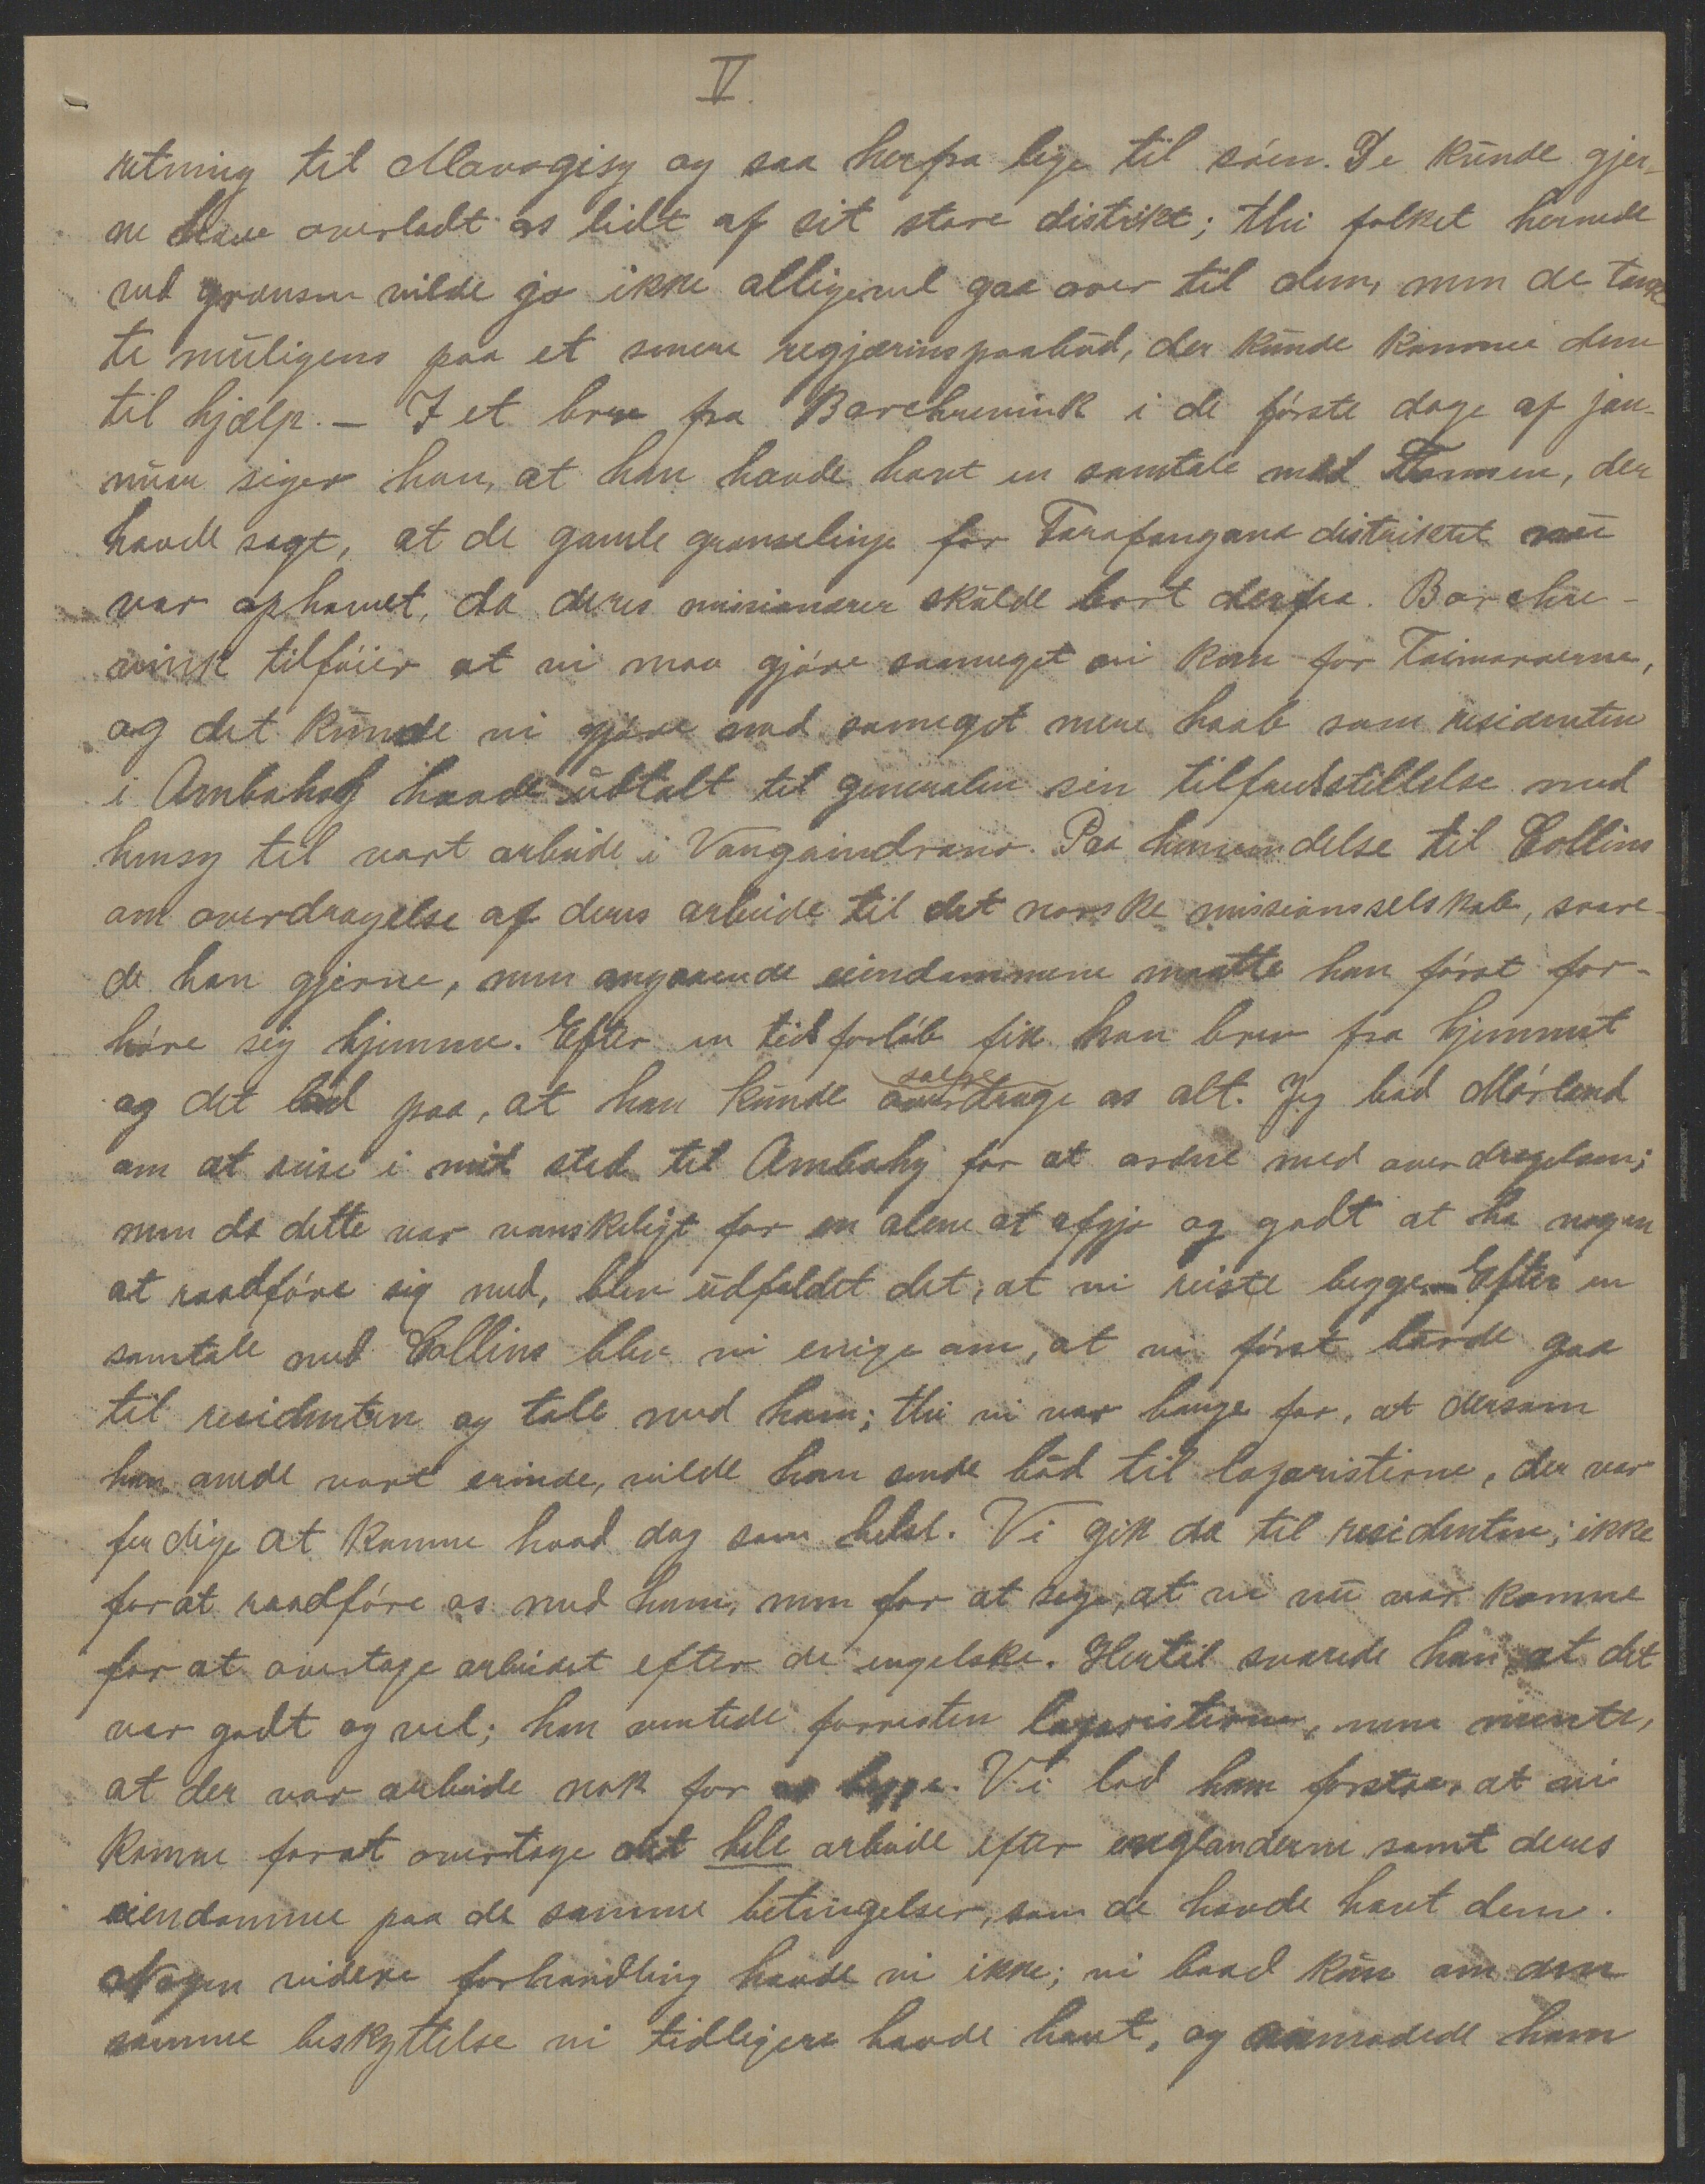 V.
retning til Mavogisy og saa herfra lige til søen. De kunde gjer-
ne have overladt os lidt af sit store distrikt; thi folket hernede
ved grænsen vilde jo ikke alligevel gaa over til dem, men de tænk
te muligens paa et senere regjæringspaabud, der kunde komme dem
til hjælp. — I et brev fra Borchrevink i de første dage af jan-
nuar siger han, at han havde havt en samtale med Tønnesen, der
havde sagt, at de gamle grænselinje for Farafangana distriktet nu
var ophævet, da deres missionærer skulde bort derfra. Borchre-
vink tilføier at vi maa gjøre saameget vi kan for Taimoroerne,
og det kunde vi gjøre med sameget mere haab som residenten
i Ambahy havde udtalt til generalen sin tilfredsstillelse med
hensy til vort arbeide i Vangaindrano. Paa henvendelse til Collins
om overdragelse af deres arbeide til det norske missionsselskab, svare-
de han gjerne, men angaaende eindommene maatte han først for-
høre sig hjemme. Efter en tids forløb fik han brev fra hjemmet
og det lød paa, at han kunde overdrage os alt. Jeg bad Mørland
om at reise i mit sted til Ambahy for at ordne med overdragelsen;
men da dette var vanskeligt for en alene at afgjø og godt at ha nogen
at raadføre sig med, blev udfaldet det, at vi reiste begge. — Efter en
samtale med Collins blev vi enige om, at vi først burde gaa
til residenten og tale med ham; thi vi var bange for, at dersom
han anede vort erinde, vilde han sende bud til lazaristerne, der var
ferdige at komme hvad dag som helst. Vi gik da til residenten; ikke
forat raadføre os med ham, men for at sige, at vi nu var komne
for at overtage arbeidet efter de engelske. Hertil svarede han, at det
var godt og vel; han ventede forresten lazaristerne, men mente,
at der var arbeide nok for os begge. Vi lod ham forstaa, at vi
komne forat overtage det hele arbeide efter englænderne samt deres
eiendomme paa de samme betingelser, som de havde havt dem.
Nogen videre forhandling havde vi ikke; vi baad kun om den
samme beskyttelse vi tidligere havde havt, og anmodede ham